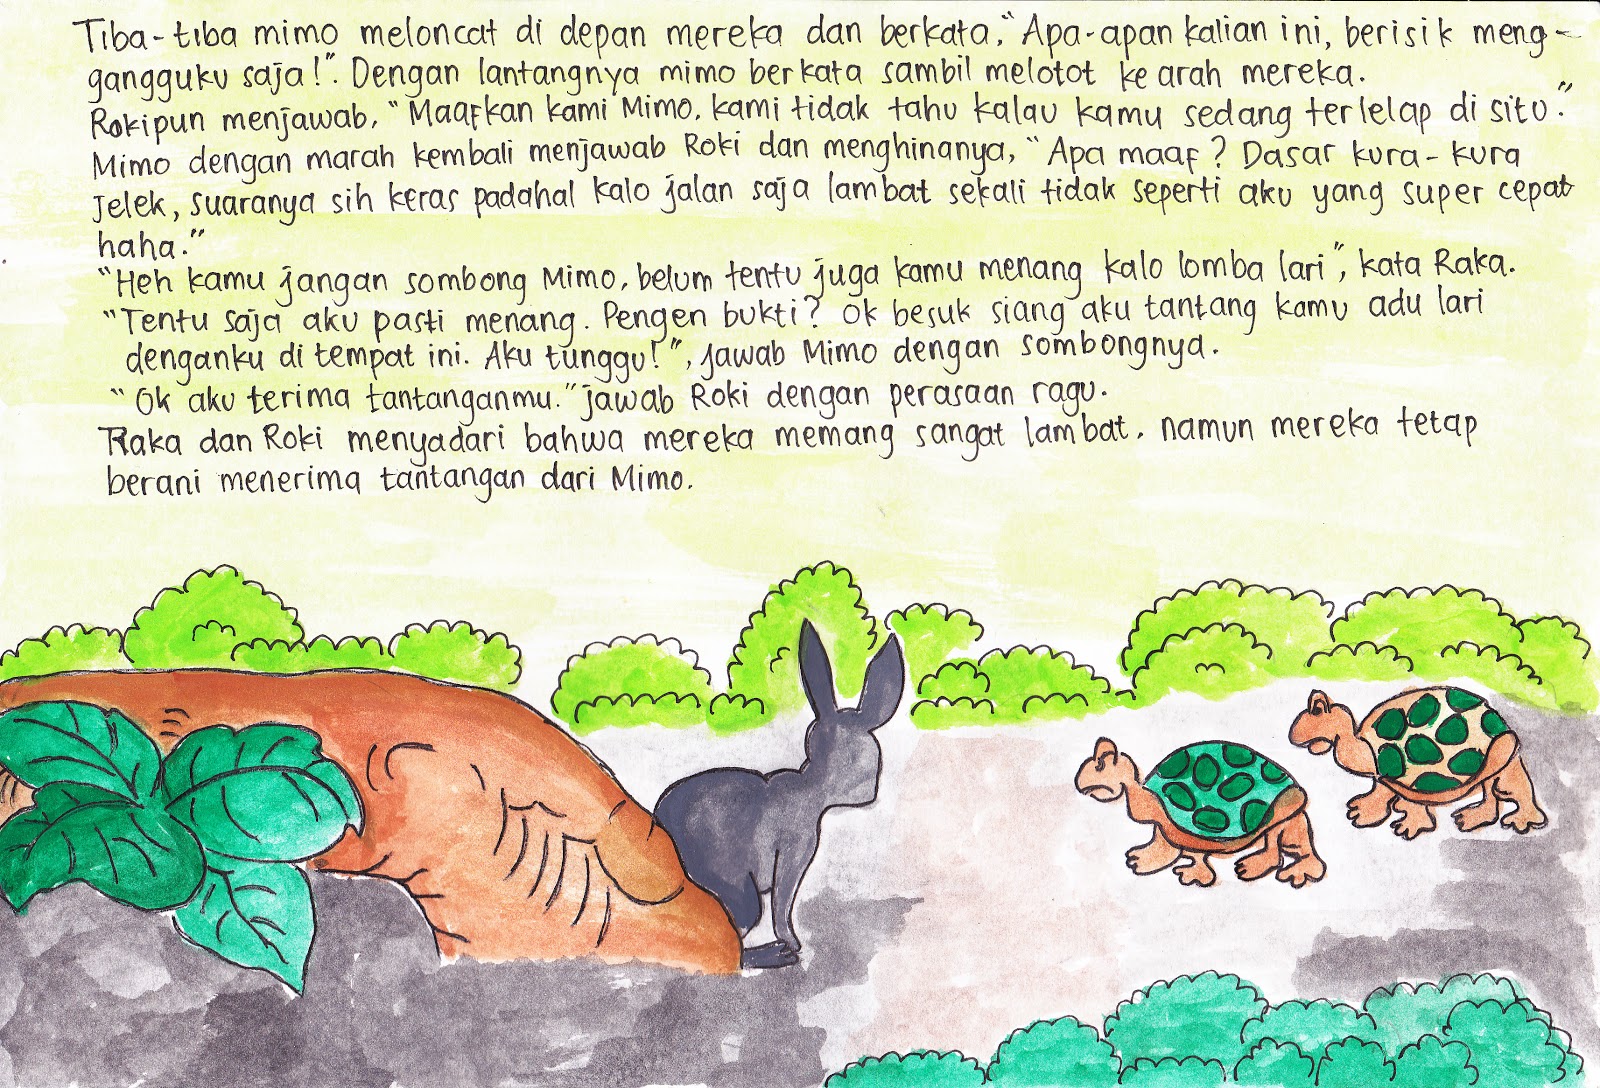 Tiba-tiba mimo meloncat di depan mereka dan berkata, "Apa-apan kalian ini, berisik meng-
gangguku saja!". Dengan lantangnya mimo berkata sambil melotot ke arah mereka.
Rokipun menjawab, "Maafkan kami Mimo. kami tidak tahu kalau kamu sedang terlelap di situ."
Mimo dengan marah kembali menjawab Roki dan menghinanya, "Apa maaf? Dasar kura-kura
jelek, suaranya sih keras padahal kalo jalan saja lambat sekali tidak seperti aku yang super cepat
haha."
"Heh kamu jangan sombong Mimo, belum tentu juga kamu menang kalo lomba lari", kata Raka.
"Tentu saja aku pasti menang. Pengen bukti? Ok besuk siang aku tantang kamu adu lari
denganku di tempat ini. Aku tunggu!", jawab Mimo dengan sombongnya.
"Ok aku terima tantanganmu." jawab Roki dengan perasaan ragu.
Raka dan Roki menyadari bahwa mereka memang sangat lambat. namun mereka tetap
berani menerima tantangan dari Mimo.